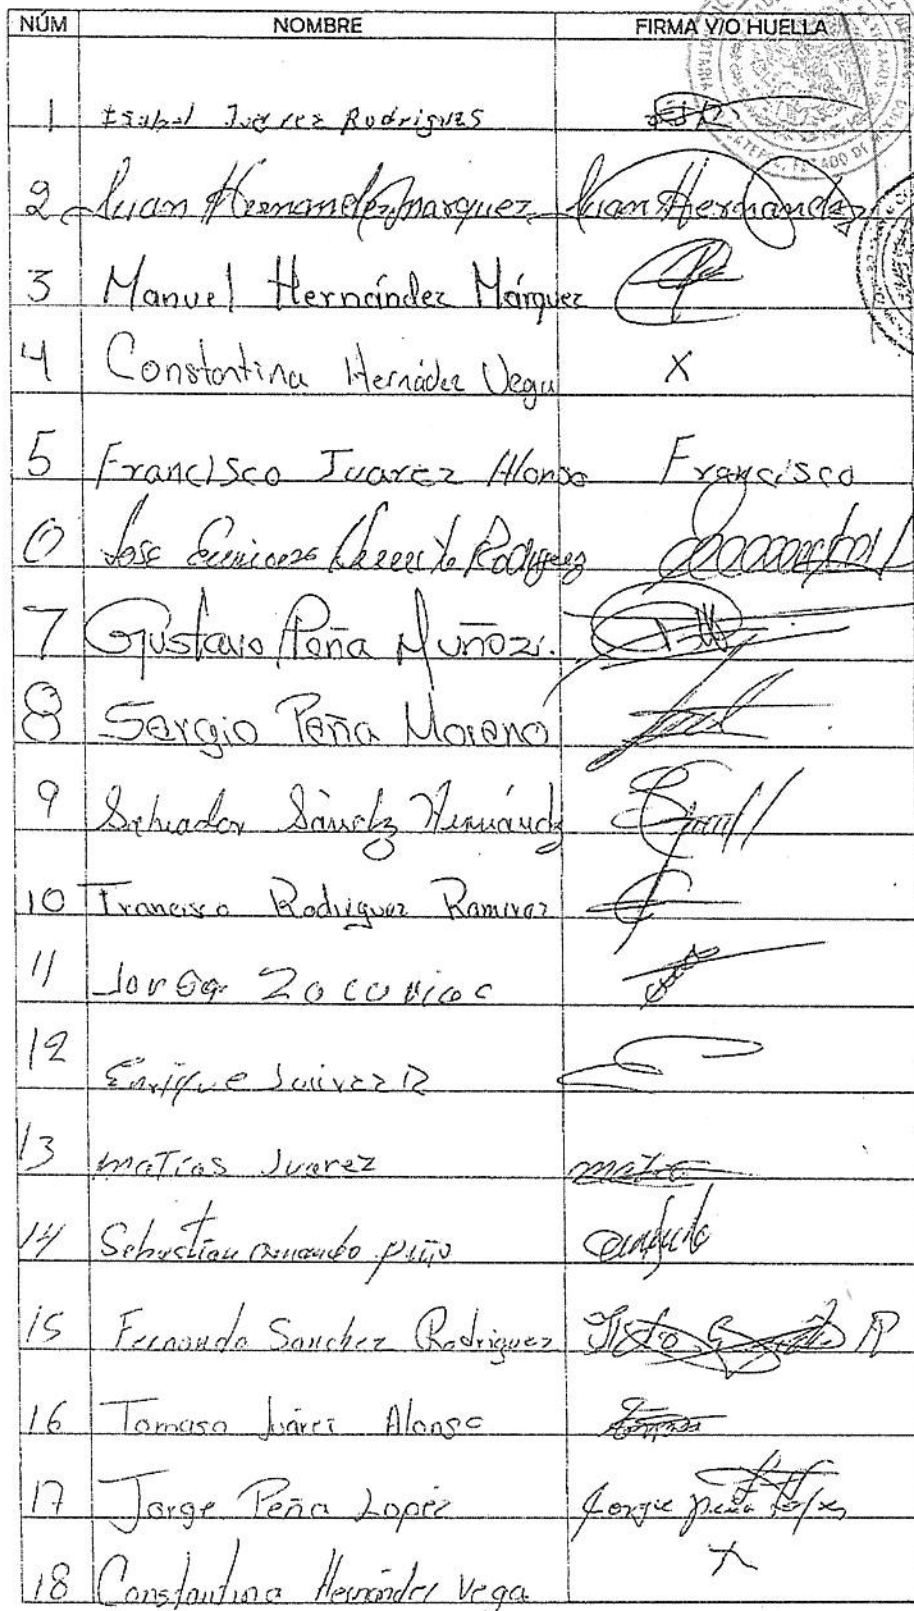 NÚM NOMBRE FIRMA Y/O HUELLA
1 Isabel Juárez Rodrigues
2 Juan Hernandez Marquez Juan Hernandez
3 Manuel Hernández Márquez
4 Constantina Hernádez Vega X
5 Francisco Juarez Alonso Francisco
6 Jose Rodriguez
7 Gustavo Peña Muñoz.
8 Sergio Peña Moreno
9 Salvador Sánchz Hernándz
10 Francisco Rodriguez Ramirez
11 Jorge Zacarias
12 Enrique Juárez R
13 Matías Juarez
14 Sebastian
15 Fernando Sanchez Rodriguez
16 Tomasa Juárez Alonso
17 Jorge Peña Lopez Jorge Peña
18 Constantina Hernández Vega X